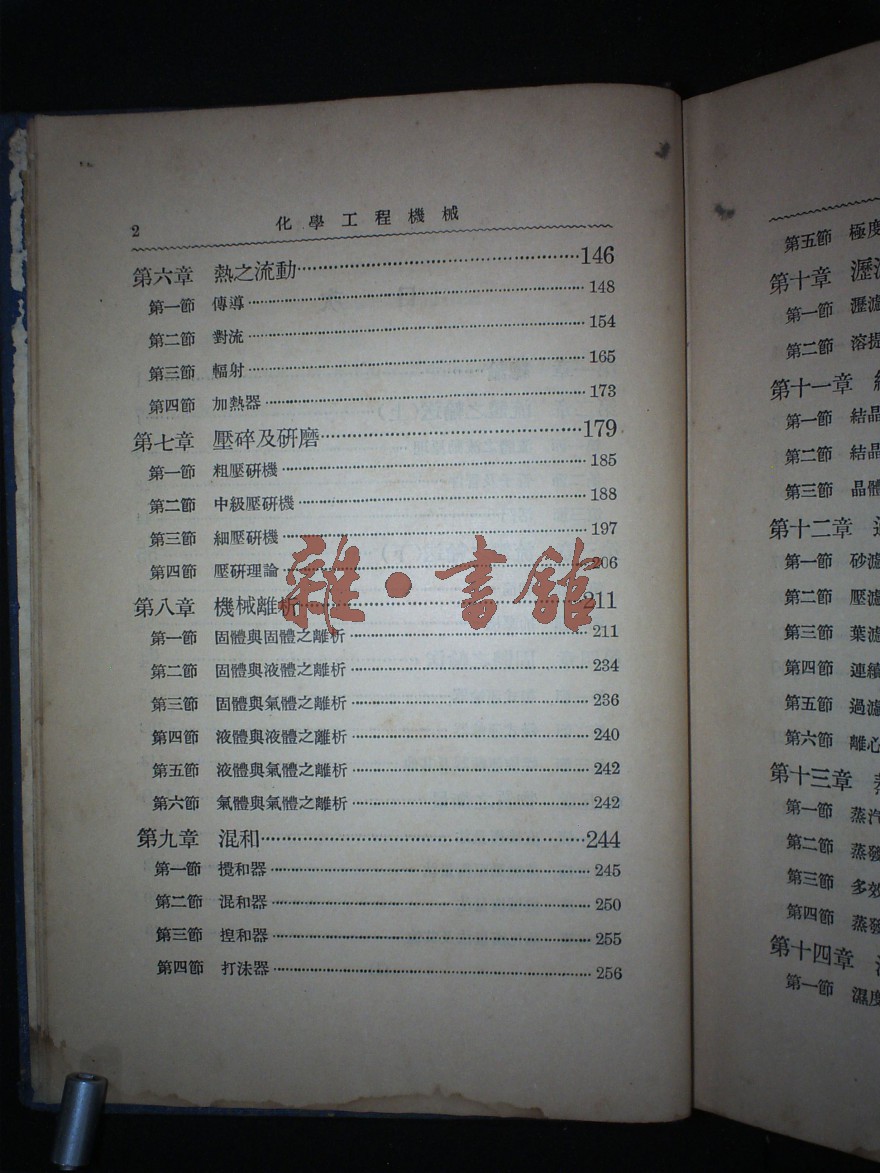 2 化學工程機械
第六章 熱之流動…………146
第一節 傳導…………148
第二節 對流…………154
第三節 輻射…………165
第四節 加熱器…………173
第七章 壓碎及研磨…………179
第一節 粗壓研機…………185
第二節 中級壓研機…………188
第三節 細壓研機…………197
第四節 壓研理論…………206
第八章 機械離析…………211
第一節 固體與固體之離析…………211
第二節 固體與液體之離析…………234
第三節 固體與氣體之離析…………236
第四節 液體與液體之離析…………240
第五節 液體與氣體之離析…………242
第六節 氣體與氣體之離析…………242
第九章 混和…………244
第一節 攪和器…………245
第二節 混和器…………250
第三節 揑和器…………255
第四節 打沬器…………256
雜·書館
第五節 極度
第十章 瀝
第一節 瀝濾
第二節 溶提
第十一章
第一節 結晶
第二節 結晶
第三節 晶體
第十二章
第一節 砂濾
第二節 壓濾
第三節 葉濾
第四節 連續
第五節 過濾
第六節 離心
第十三章
第一節 蒸汽
第二節 蒸發
第三節 多效
第四節 蒸發
第十四章
第一節 濕度